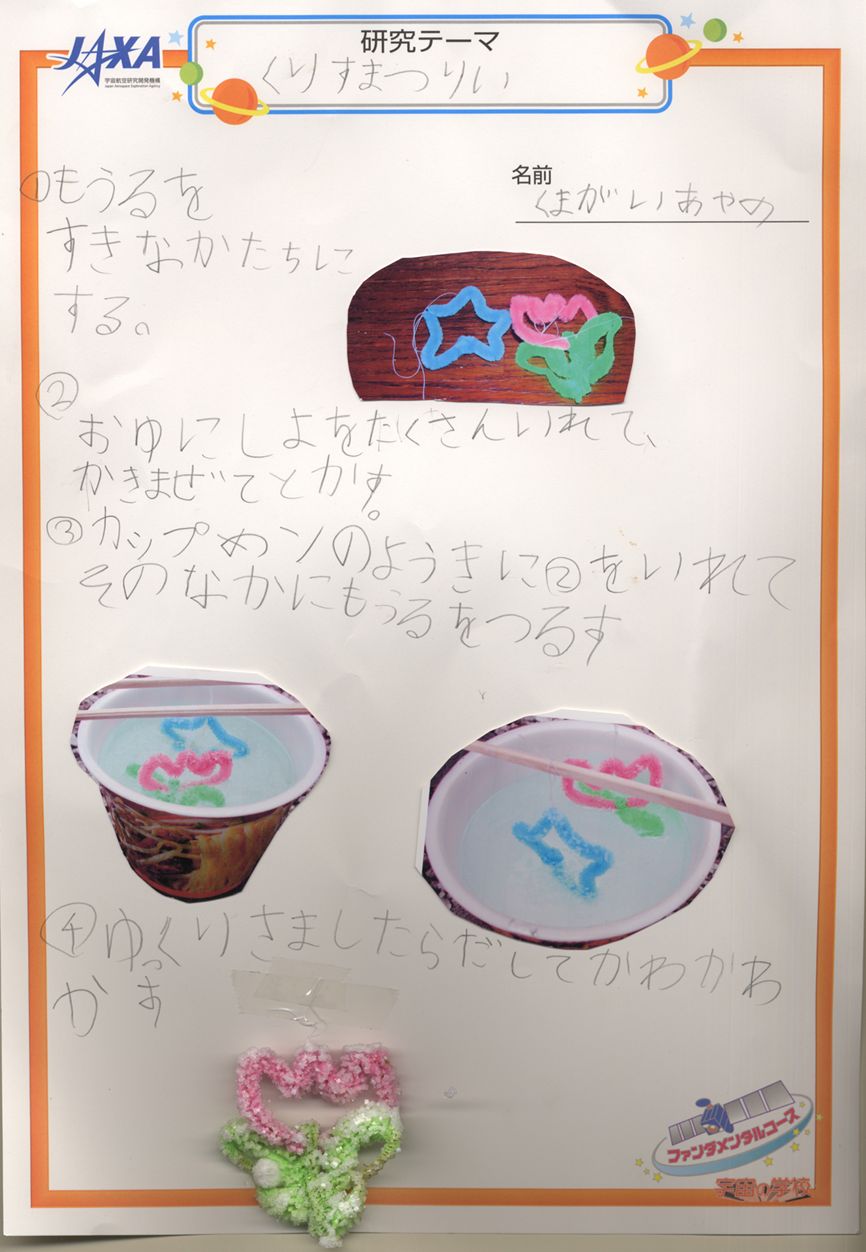 JAXA
宇宙航空研究開発機構
Japan Aerospace Exploration Agency
研究テーマ
くりすまつりい
名前
くまがいあやめ
①もうるを
すきなかたちに
する。
②
おゆにしよをたくさんいれて、
かきまぜてとかす。
③カップめンのようきに②をいれて
そのなかにもうるをつるす
④ゆっくりさましたらだしてかわかわ
かす
ファンダメンタルコース
宇宙の学校